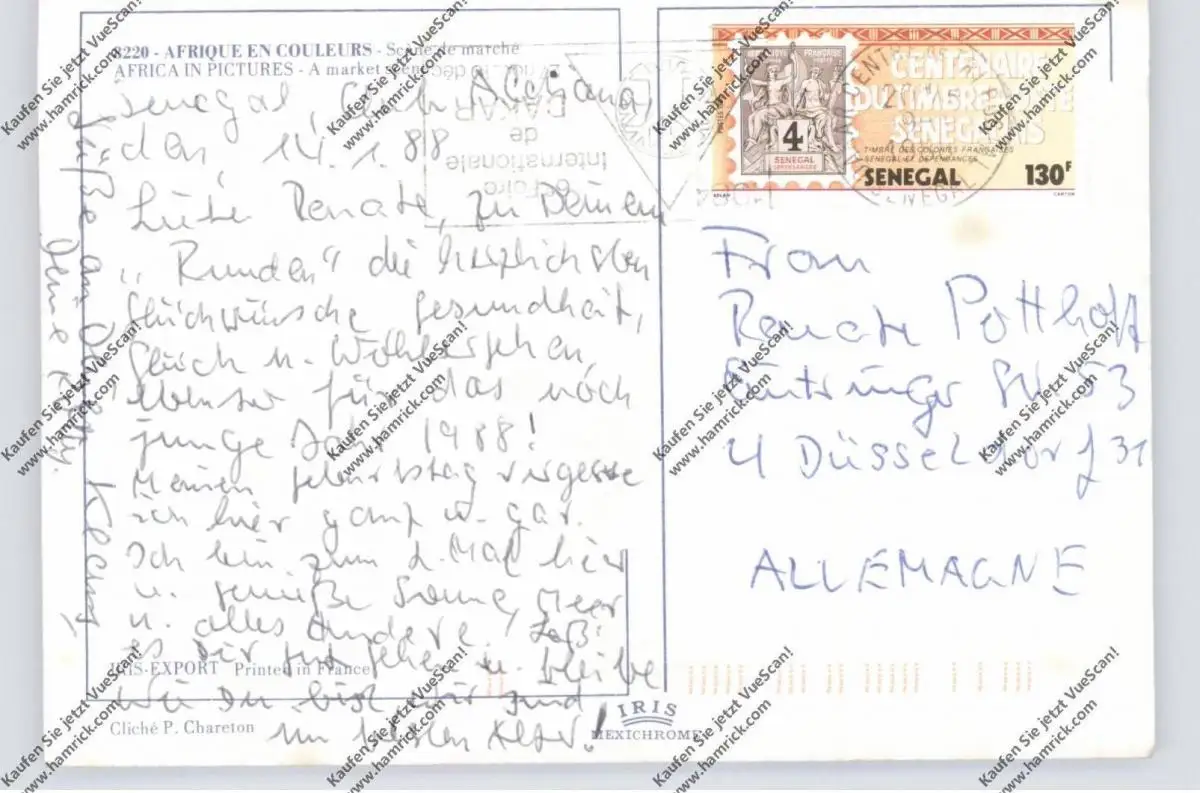 8220 - AFRIQUE EN COULEURS - Scène de marché
AFRICA IN PICTURES - A market scene
Senegal, Club Aldiana
den 14.1.88
Liebe Renate, zu Deinem
„Runden“ die herzlichsten
Glückwünsche Gesundheit,
Glück u. Wohlergehen
ebenso für das noch
junge Jahr 1988!
Meinen Geburtstag vergesse
ich hier ganz u. gar.
Ich bin zum 2. Mal hier
u. genieße Sonne, Meer
u. alles Andere. Laß
es Dir gut gehen u. bleibe
wie Du bist wir sind
im besten Alter!
Grüße an
Deine
Klaus
IRIS-EXPORT Printed in France
Cliché P. Chareton
IRIS
MEXICHROME
Foire
Internationale
de
DAKAR
CENTENAIRE
DU TIMBRE POSTE
SENEGALAIS
4
SENEGAL
TIMBRE DES COLONIES FRANÇAISES
SENEGAL ET DEPENDANCES
SENEGAL 130F
Frau
Renate Potthoff
Str. 53
4 Düsseldorf 31
ALLEMAGNE
Kaufen Sie jetzt VueScan!
www.hamrick.com